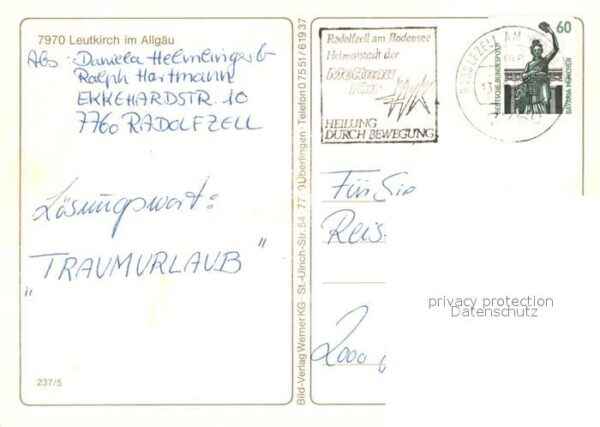 7970 Leutkirch im Allgäu
Abs: Daniela Helmlinger &
Ralph Hartmann
EKKEHARDSTR. 10
7760 RADOLFZELL
Lösungswort:
"TRAUMURLAUB"
237/5
Bild-Verlag Werner KG · St.-Ulrich-Str. 54 · 77 Überlingen · Telefon 07551/61937
Radolfzell am Bodensee
Heimatstadt der
Mettnau
Kur
HEILUNG
DURCH BEWEGUNG
RADOLFZELL AM
60
DEUTSCHE BUNDESPOST
BAVARIA MÜNCHEN
Für Sie
Reis
2000
privacy protection
Datenschutz